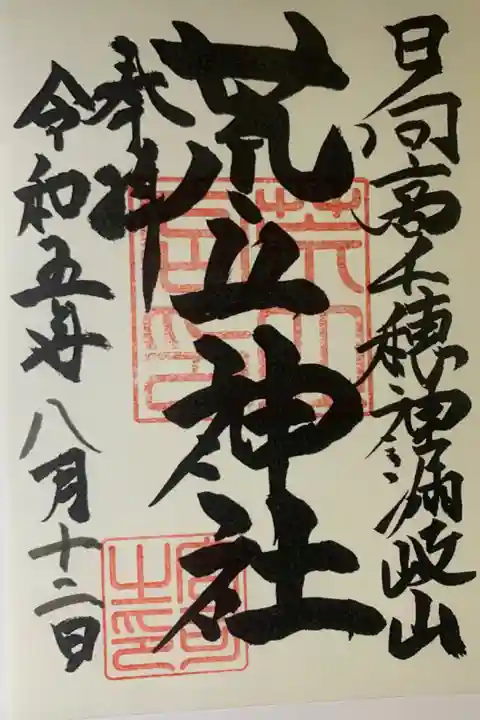 日向高千穂神漏岐山
荒立神社
奉拝
令和五年八月十二日
宮司之印